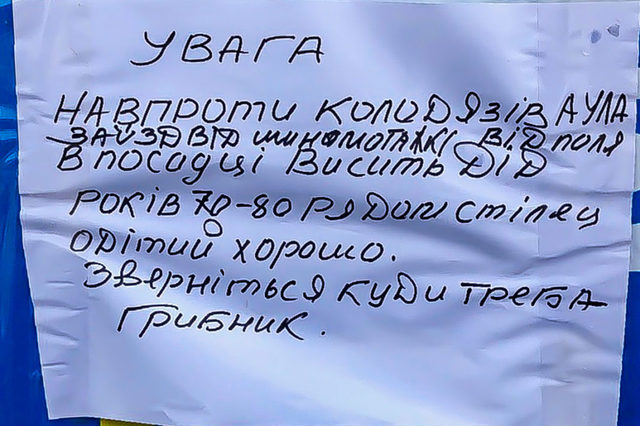 УВАГА
НАВПРОТИ КОЛОДЯЗІВ АУЛА
ЗАЇЗД ВІД ШИНОМОТАЖКІ ВІД ПОЛЯ
В ПОСАДЦІ ВИСИТЬ ДІД
РОКІВ 70-80 РЯДОМ СТІЛЕЦ
ОДІТИЙ ХОРОШО.
ЗВЕРНІТЬСЯ КУДИ ТРЕБА
ГРИБНИК.